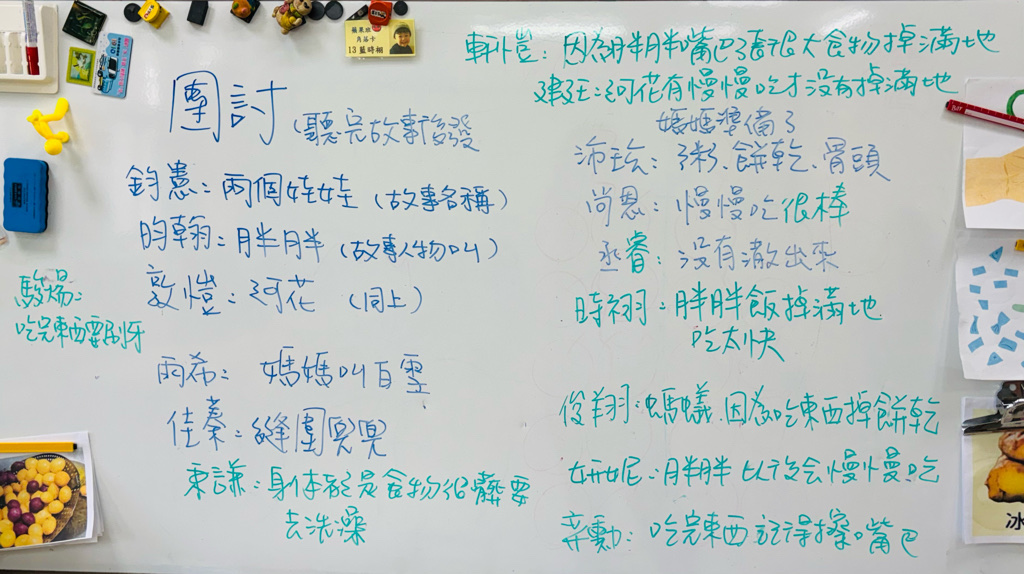 蘋果班
角落卡
13 藍時栩
團討
(聽完故事後發
鈞憲：兩個娃娃(故事名稱)
昀翰：胖胖(故事人物叫)
敦愷：河花 (同上)
駿揚：
吃完東西要刷牙
雨希： 媽媽叫白雲
佳蓁：縫圍兜兜
東謙：身体都是食物很髒要
去洗澡
軒愷：因為胖胖嘴巴張很大食物掉滿地
建廷：河花有慢慢吃才没有掉滿地
媽媽準備了
沛玹：粥、餅乾、骨頭
尚恩：慢慢吃很棒
丞睿：没有澈出來
時栩：胖胖飯掉滿地
吃太快
俊翔：螞蟻.因為吃東西掉餅乾
妍妮：胖胖以後会慢慢吃
弈勳：吃完東西記得擦嘴巴
冰